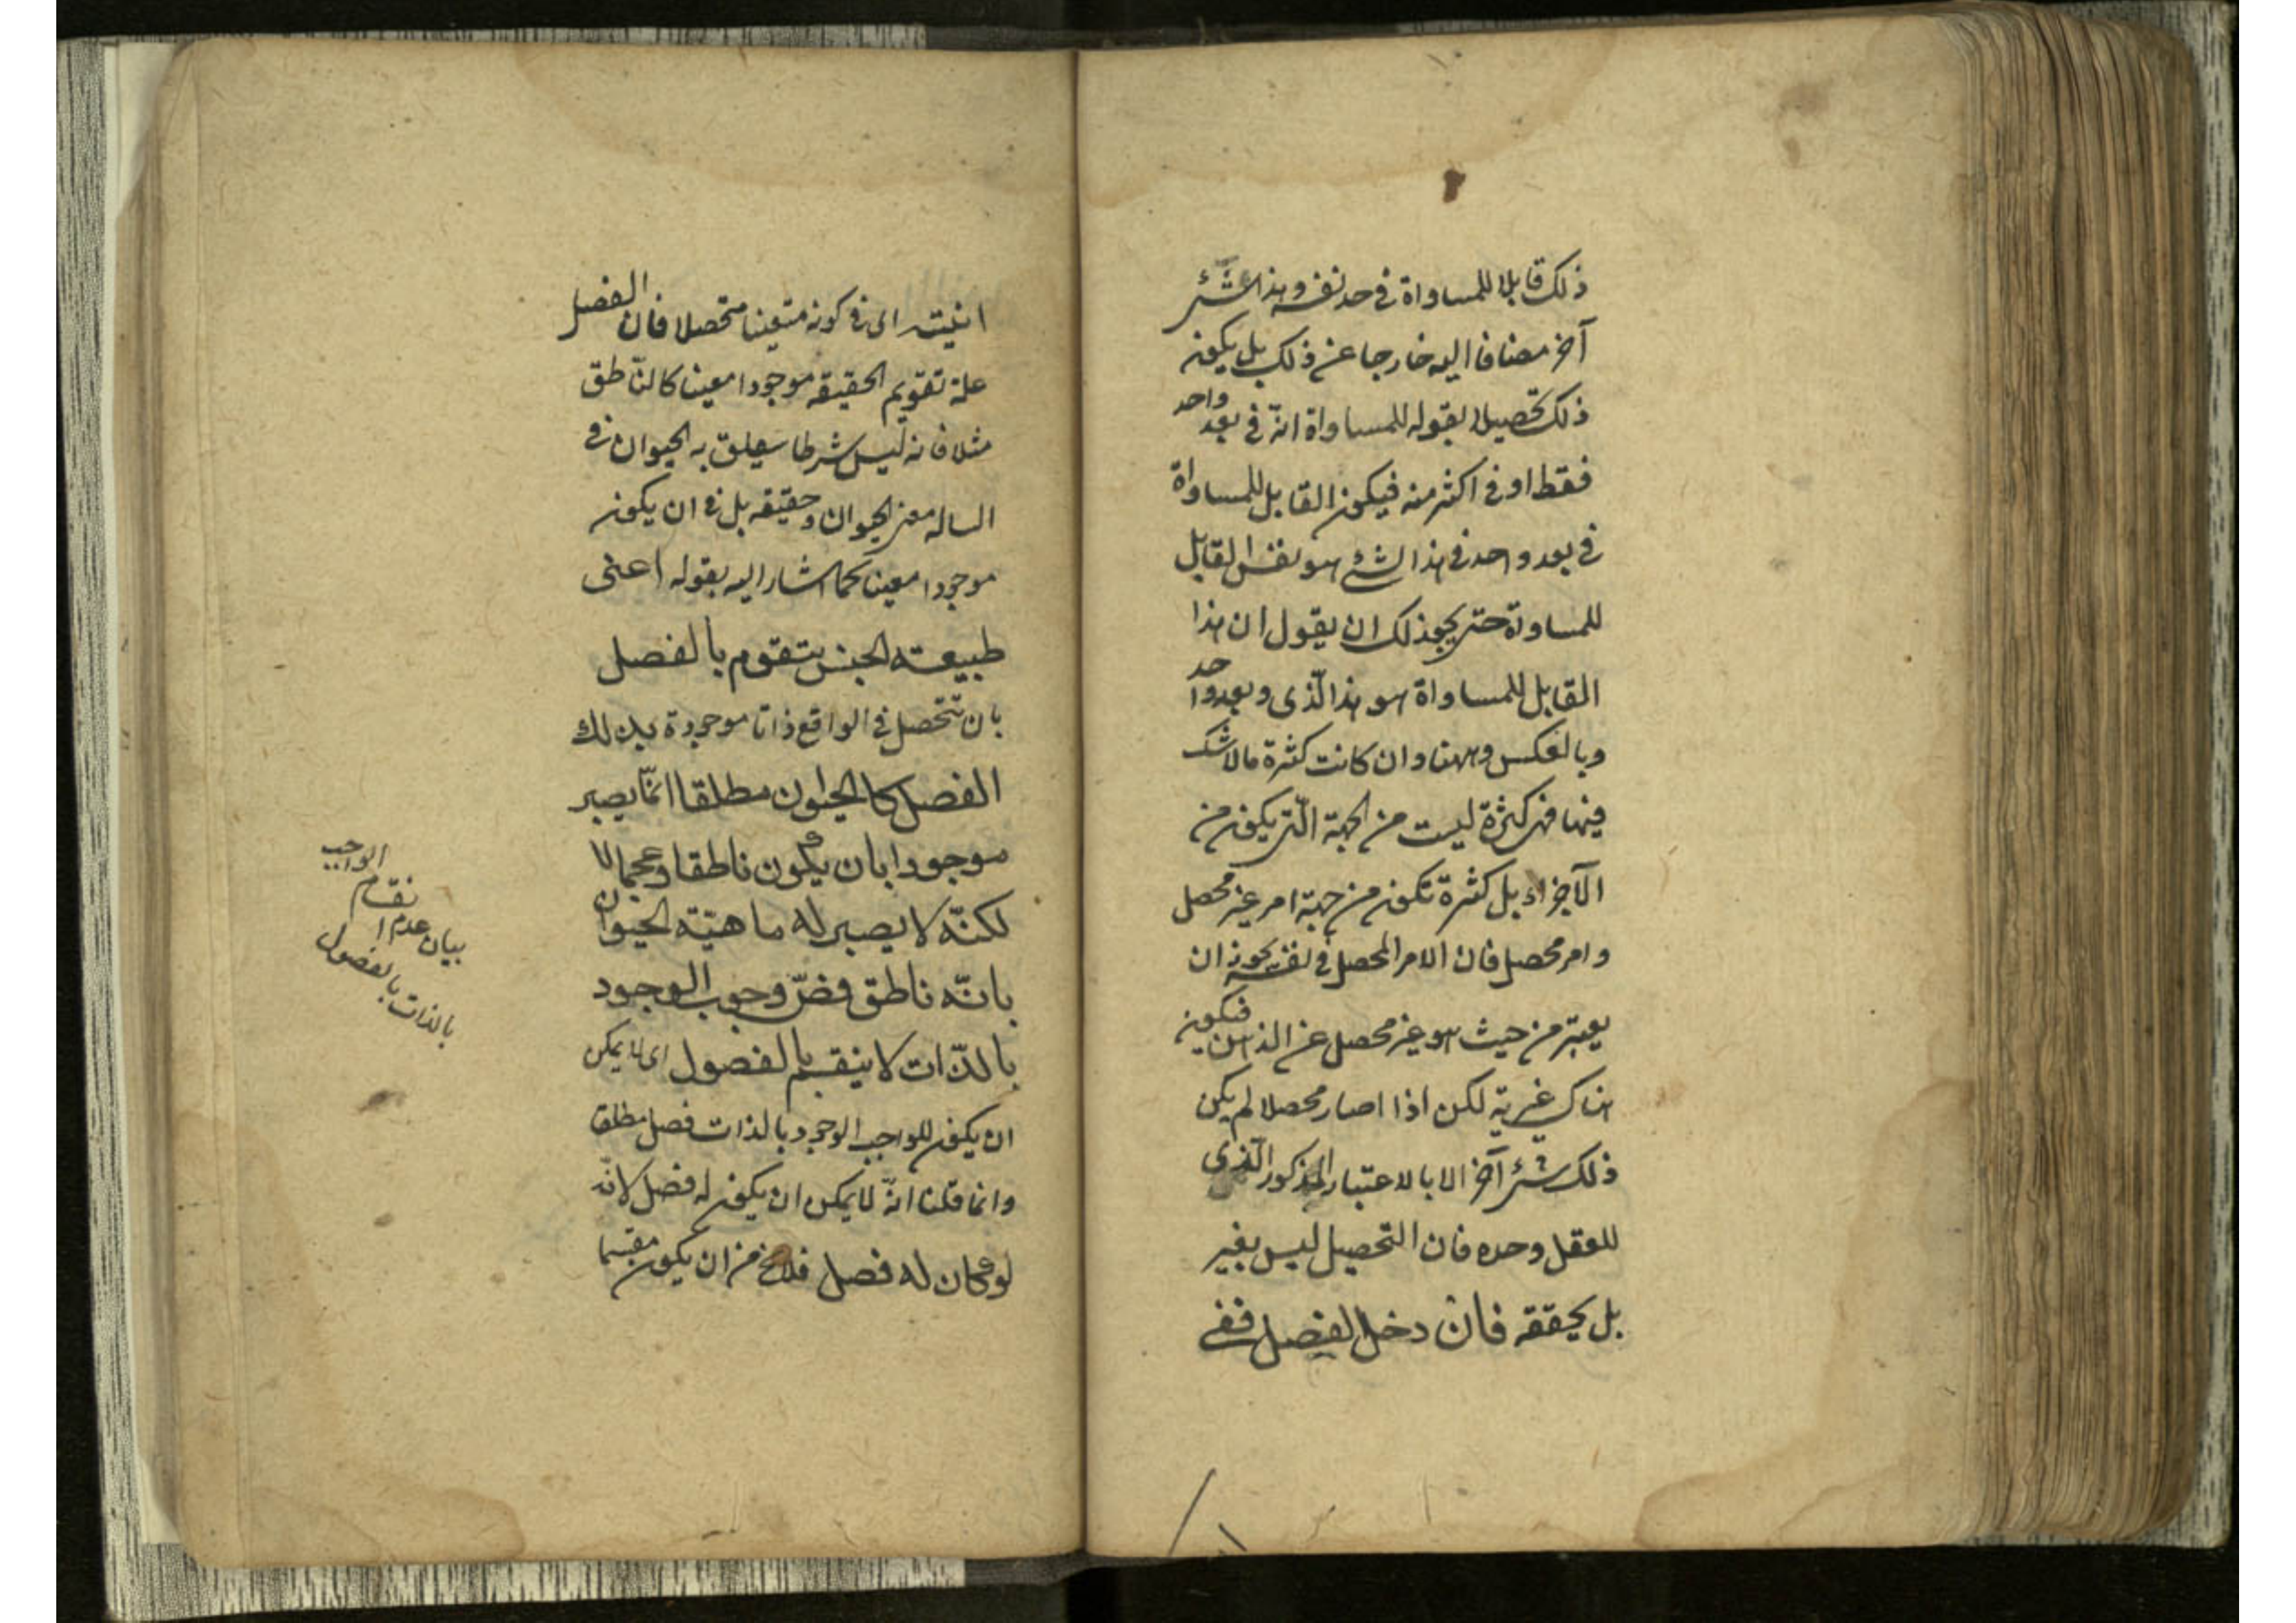 ذلك قابلا للمساواة فى حد نفسه وهذا شئ
آخر مضافا اليه خارجا عن ذلك بل يكون
ذلك تحصيلا لقوله للمساواة انّه فى بعد واحد
فقط او فى اكثر منه فيكون القابل للمساواة
فى بعد واحد فى هذا الشئ هو نفس القابل
للمساواة حتى يجوز لك ان يقول ان هذا
القابل للمساواة هو هذا الّذى و بعد واحد
وبالعكس وههنا وان كانت كثرة مالا شك
فيها فهى كثرة ليست من الجهة الّتى يكون من
الآجزاء بل كثرة تكون من جهة امر غير محصل
وامر محصل فان الامر المحصل فى نفسه يجوز ان
يعتبر من حيث هو غير محصل عن الذهن فيكون
هناك غيرية لكن اذا اصار محصلا لم يكن
ذلك شئ آخر الا بالاعتبار المذكور الّذى
للعقل وحده فان التحصيل ليس بغير
بل يحققه فان دخل الفصل ففى
انيته اى فى كونه متعينا متحصلا فان الفصل
علة تقويم الحقيقه موجودا معينا كالنّاطق
مثلا فانه ليس شرطا يتعلق به الحيوان فى
ان له معنى الحيوان وحقيقه بل فى ان يكون
موجودا معينا كما اشار اليه بقوله اعنى
طبيعته الجنس يتقوم بالفصل
بان تتحصل فى الواقع ذاتا موجودة بذلك
الفصل كالحيوان مطلقا انّما يصير
موجودا بان يكون ناطقا وعجما لا
لكنّه لا يصير له ماهيّته الحيوان
بانّه ناطق وجوب الوجود
بالذّات لا ينقسم بالفصول اى لا يمكن
ان يكون للواجب الوجود بالذات فصل مطلق
وانما قلنا انّه لا يمكن ان يكون له فصل لانّه
لو كان له فصل فلا يخ من ان يكون مقسما
بيان عدم انقسام الواجب
بالذات بالفصول